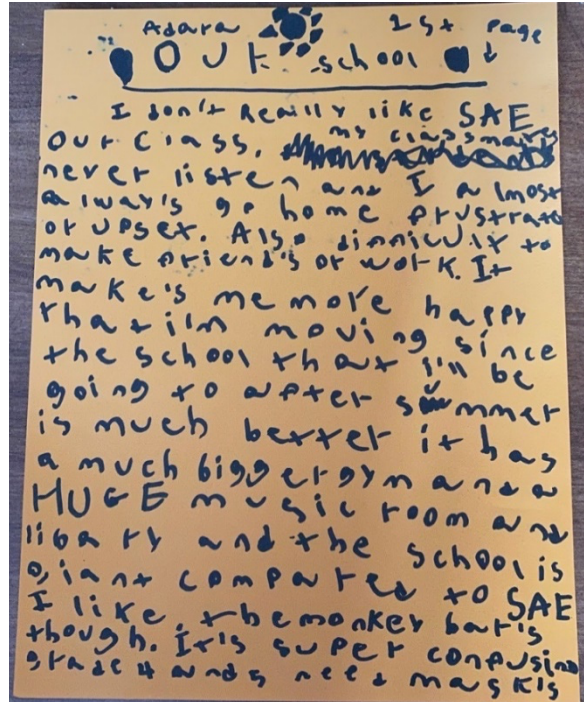 Adara 1st page
Our school ↓
I don't Really like SAE
our class. my classmates
never listen and I almost
alway's go home frustrated
or upset. Also difficult to
make friend's or work. It
make's me more happy
that i'm moving since
the school that I'll be
going to after summer
is much better it has
a much bigger gym and a
HUGE music room and
libary and the school is
giant compared to SAE
I like the monkey bar's
though. It's super confusing
grade 4 and 5 need mask's